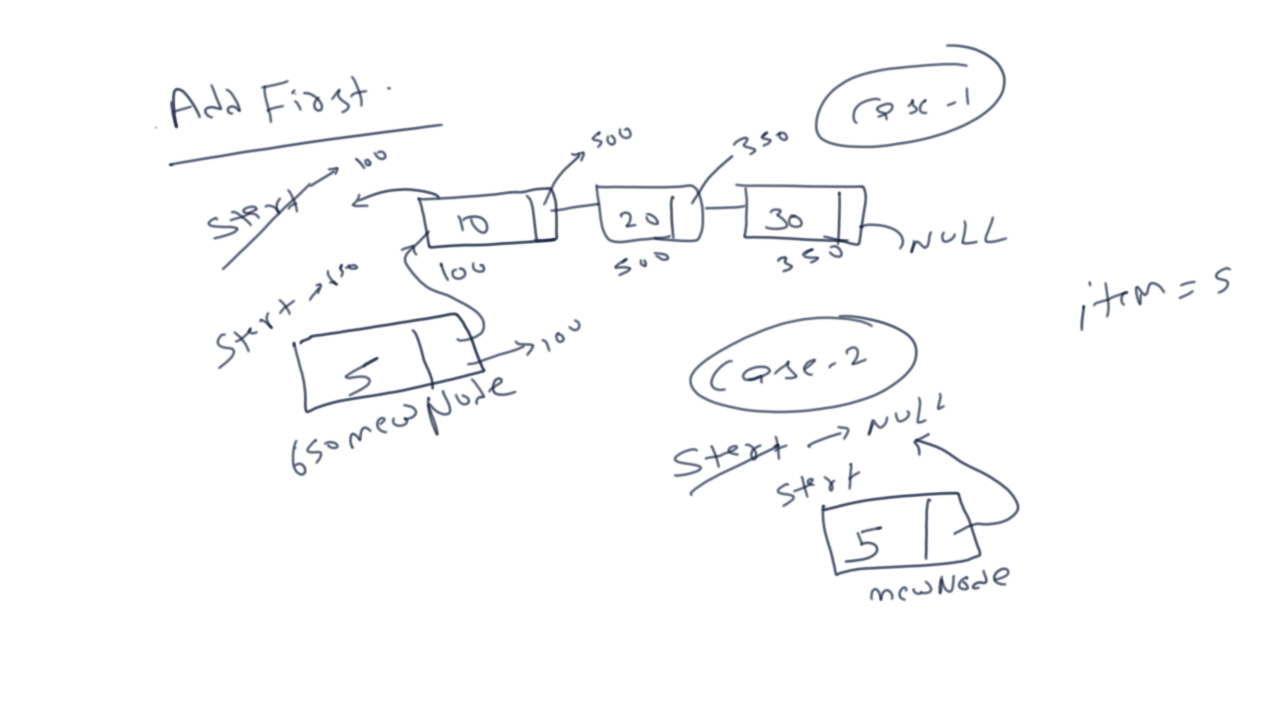 Add First.
Case-1
Start → 100
500
350
10
20
30
NULL
100
500
350
item = 5
Start → 650
5
100
650 newNode
Case-2
Start → NULL
Start
5
newNode